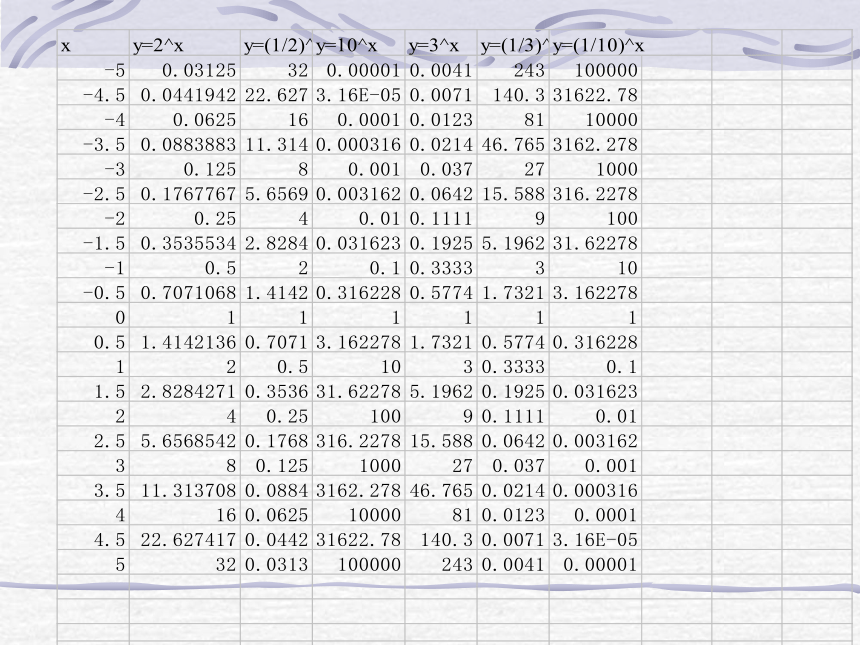 x y=2^x y=(1/2)^ y=10^x y=3^x y=(1/3)^ y=(1/10)^x
-5 0.03125 32 0.00001 0.0041 243 100000
-4.5 0.0441942 22.627 3.16E-05 0.0071 140.3 31622.78
-4 0.0625 16 0.0001 0.0123 81 10000
-3.5 0.0883883 11.314 0.000316 0.0214 46.765 3162.278
-3 0.125 8 0.001 0.037 27 1000
-2.5 0.1767767 5.6569 0.003162 0.0642 15.588 316.2278
-2 0.25 4 0.01 0.1111 9 100
-1.5 0.3535534 2.8284 0.031623 0.1925 5.1962 31.62278
-1 0.5 2 0.1 0.3333 3 10
-0.5 0.7071068 1.4142 0.316228 0.5774 1.7321 3.162278
0 1 1 1 1 1 1
0.5 1.4142136 0.7071 3.162278 1.7321 0.5774 0.316228
1 2 0.5 10 3 0.3333 0.1
1.5 2.8284271 0.3536 31.62278 5.1962 0.1925 0.031623
2 4 0.25 100 9 0.1111 0.01
2.5 5.6568542 0.1768 316.2278 15.588 0.0642 0.003162
3 8 0.125 1000 27 0.037 0.001
3.5 11.313708 0.0884 3162.278 46.765 0.0214 0.000316
4 16 0.0625 10000 81 0.0123 0.0001
4.5 22.627417 0.0442 31622.78 140.3 0.0071 3.16E-05
5 32 0.0313 100000 243 0.0041 0.00001